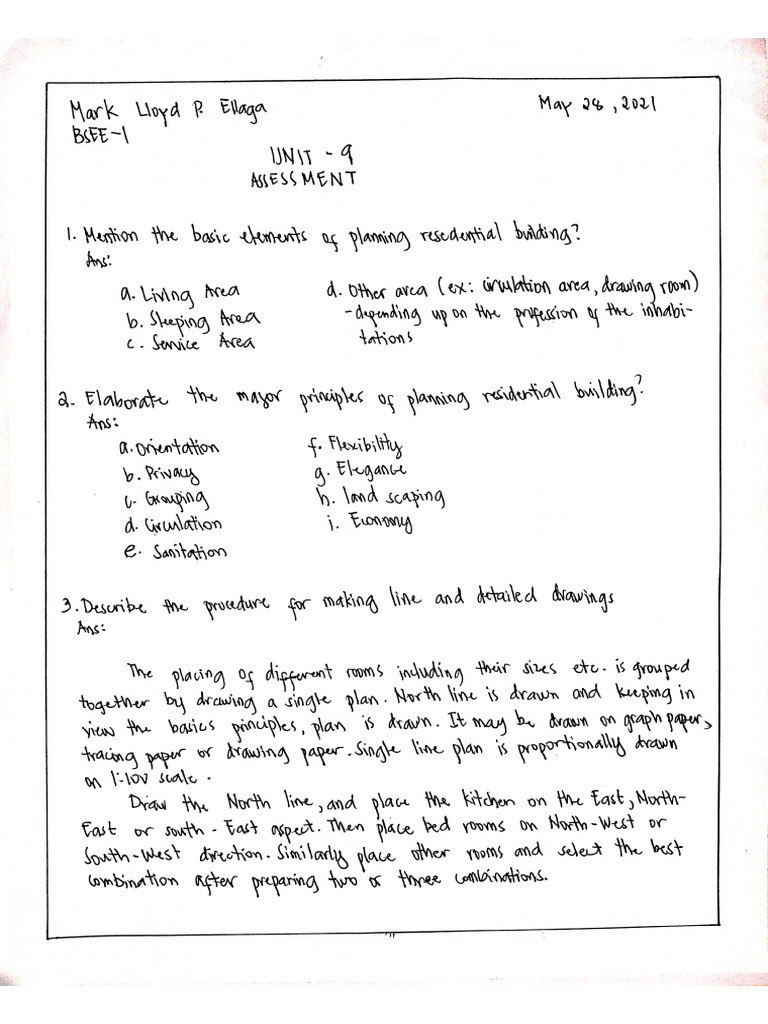 Mark Lloyd P. Ellaga
May 28, 2021
BSEE-1
UNIT - 9
ASSESSMENT
1. Mention the basic elements of planning resedential building?
Ans:
a. Living Area
b. Sleeping Area
c. Service Area
d. Other area (ex: circulation area, drawing room)
-depending up on the profession of the inhabi-
tations
2. Elaborate the major principles of planning residential building?
Ans:
a. Orientation
b. Privacy
c. Grouping
d. Circulation
e. Sanitation
f. Flexibility
g. Elegance
h. land scaping
i. Economy
3. Describe the procedure for making line and detailed drawings
Ans:
The placing of different rooms including their sizes etc. is grouped
together by drawing a single plan. North line is drawn and keeping in
view the basics principles, plan is drawn. It may be drawn on graph paper,
tracing paper or drawing paper. Single line plan is proportionally drawn
on 1:100 scale.
Draw the North line, and place the kitchen on the East, North-
East or south - East aspect. Then place bed rooms on North-West or
South-West direction. Similarly place other rooms and select the best
combination after preparing two or three combinations.